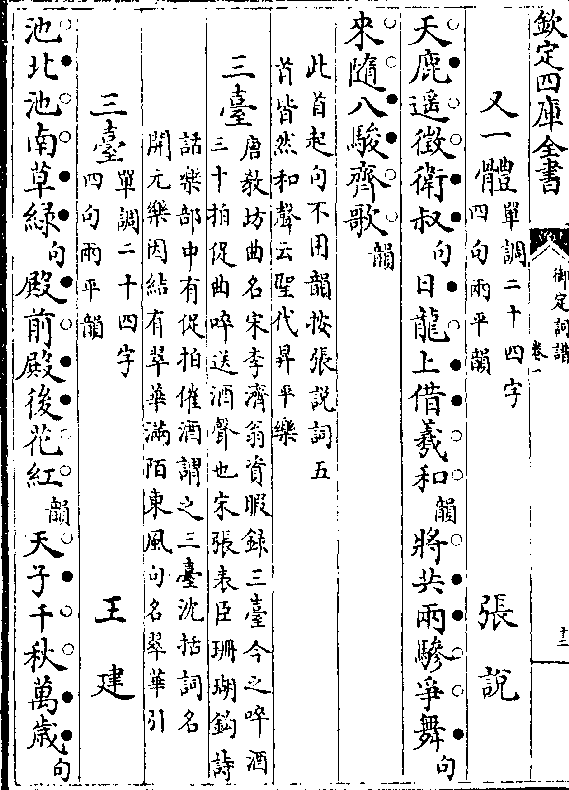 欽定四庫全書
御定詞譜
卷一
十二
又一體
單調二十四字
四句兩平韻
張說
天鹿遥徵衛叔句日龍上借羲和韻將共兩驂爭舞句
來隨八駿齊歌韻
此首起句不用韻按張説詞五
首皆然和聲云聖代昇平樂
三臺
唐敎坊曲名宋李濟翁資暇録三臺今之啐酒
三十拍促曲啐送酒聲也宋張表臣珊瑚鈎詩
話樂部中有促拍催酒謂之三臺沈括詞名
開元樂因結有翠華滿陌東風句名翠華引
三臺
單調二十四字
四句兩平韻
王建
池北池南草緑句殿前殿後花紅韻天子千秋萬歲句